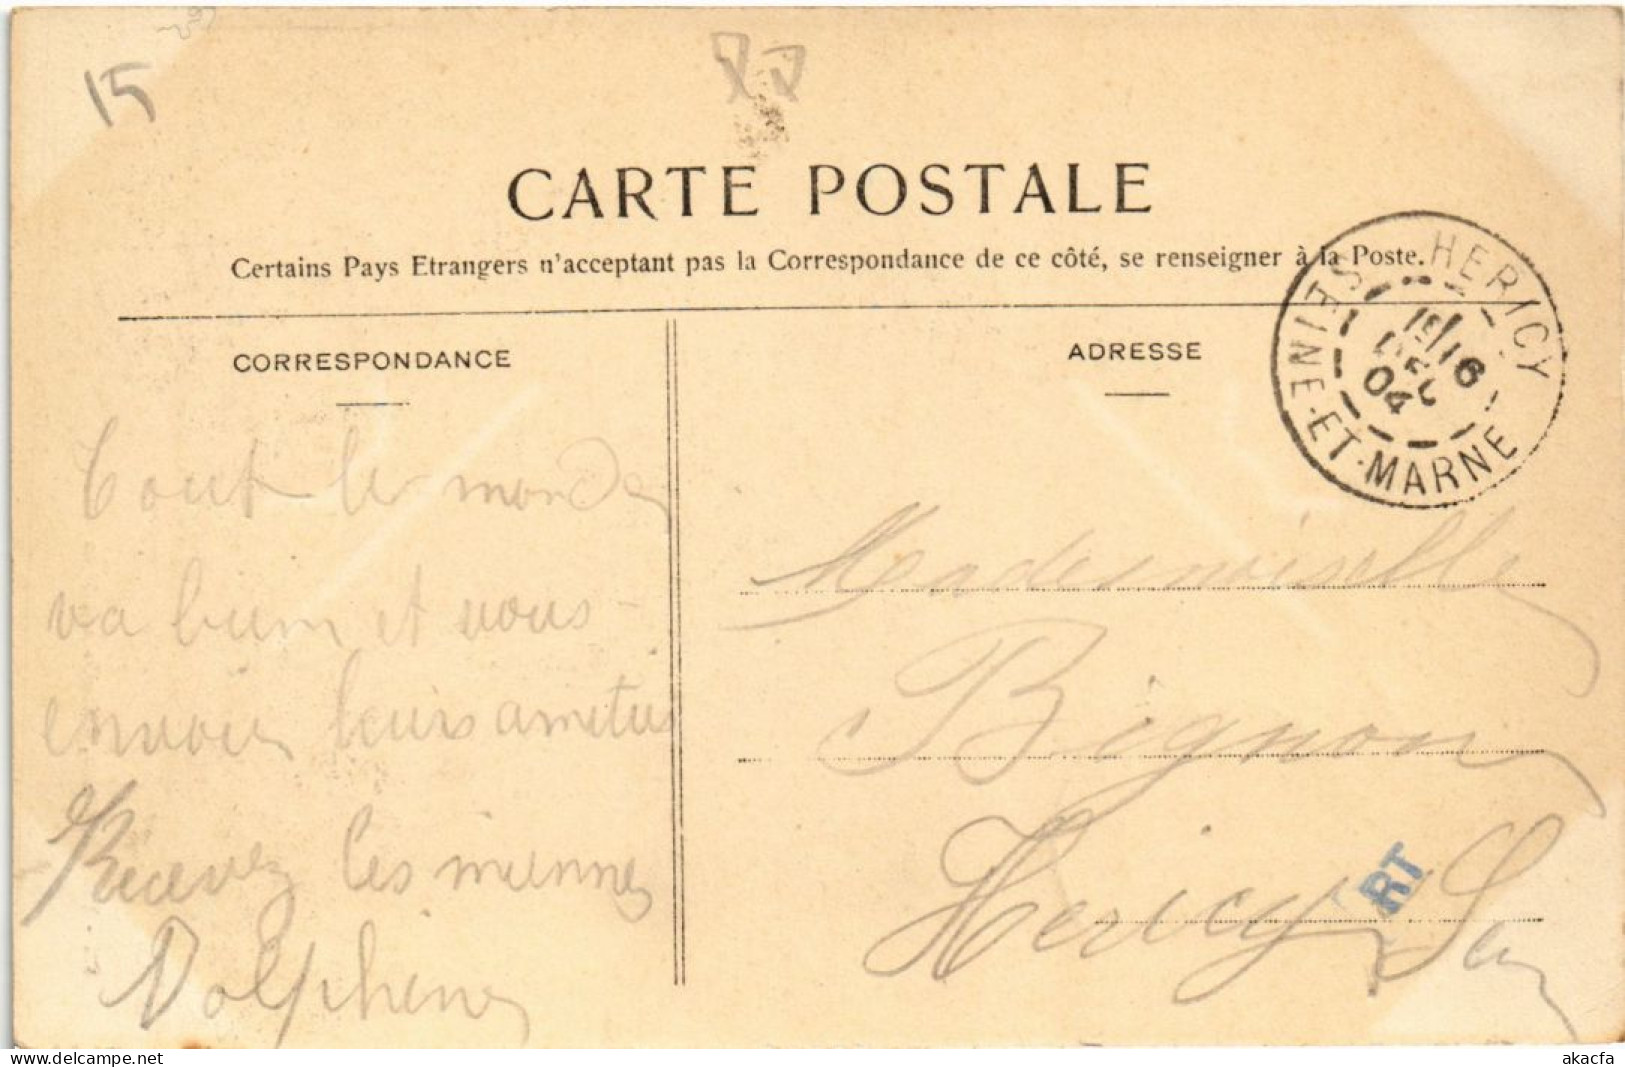 15
CARTE POSTALE
Certains Pays Etrangers n'acceptant pas la Correspondance de ce côté, se renseigner à la Poste.
HERICY
SEINE-ET-MARNE
15 / 16
DEC
04
CORRESPONDANCE
Tout le monde
va bien et vous
envoie leurs amitiés
Recevez les miennes
Dolphine
ADRESSE
Mademoiselle
Bignon
Hericy
RT
www.delcampe.net
akacfa